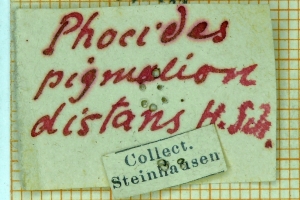 Phocides
pigmalion
distans H. Sch.
Collect.
Steinhausen